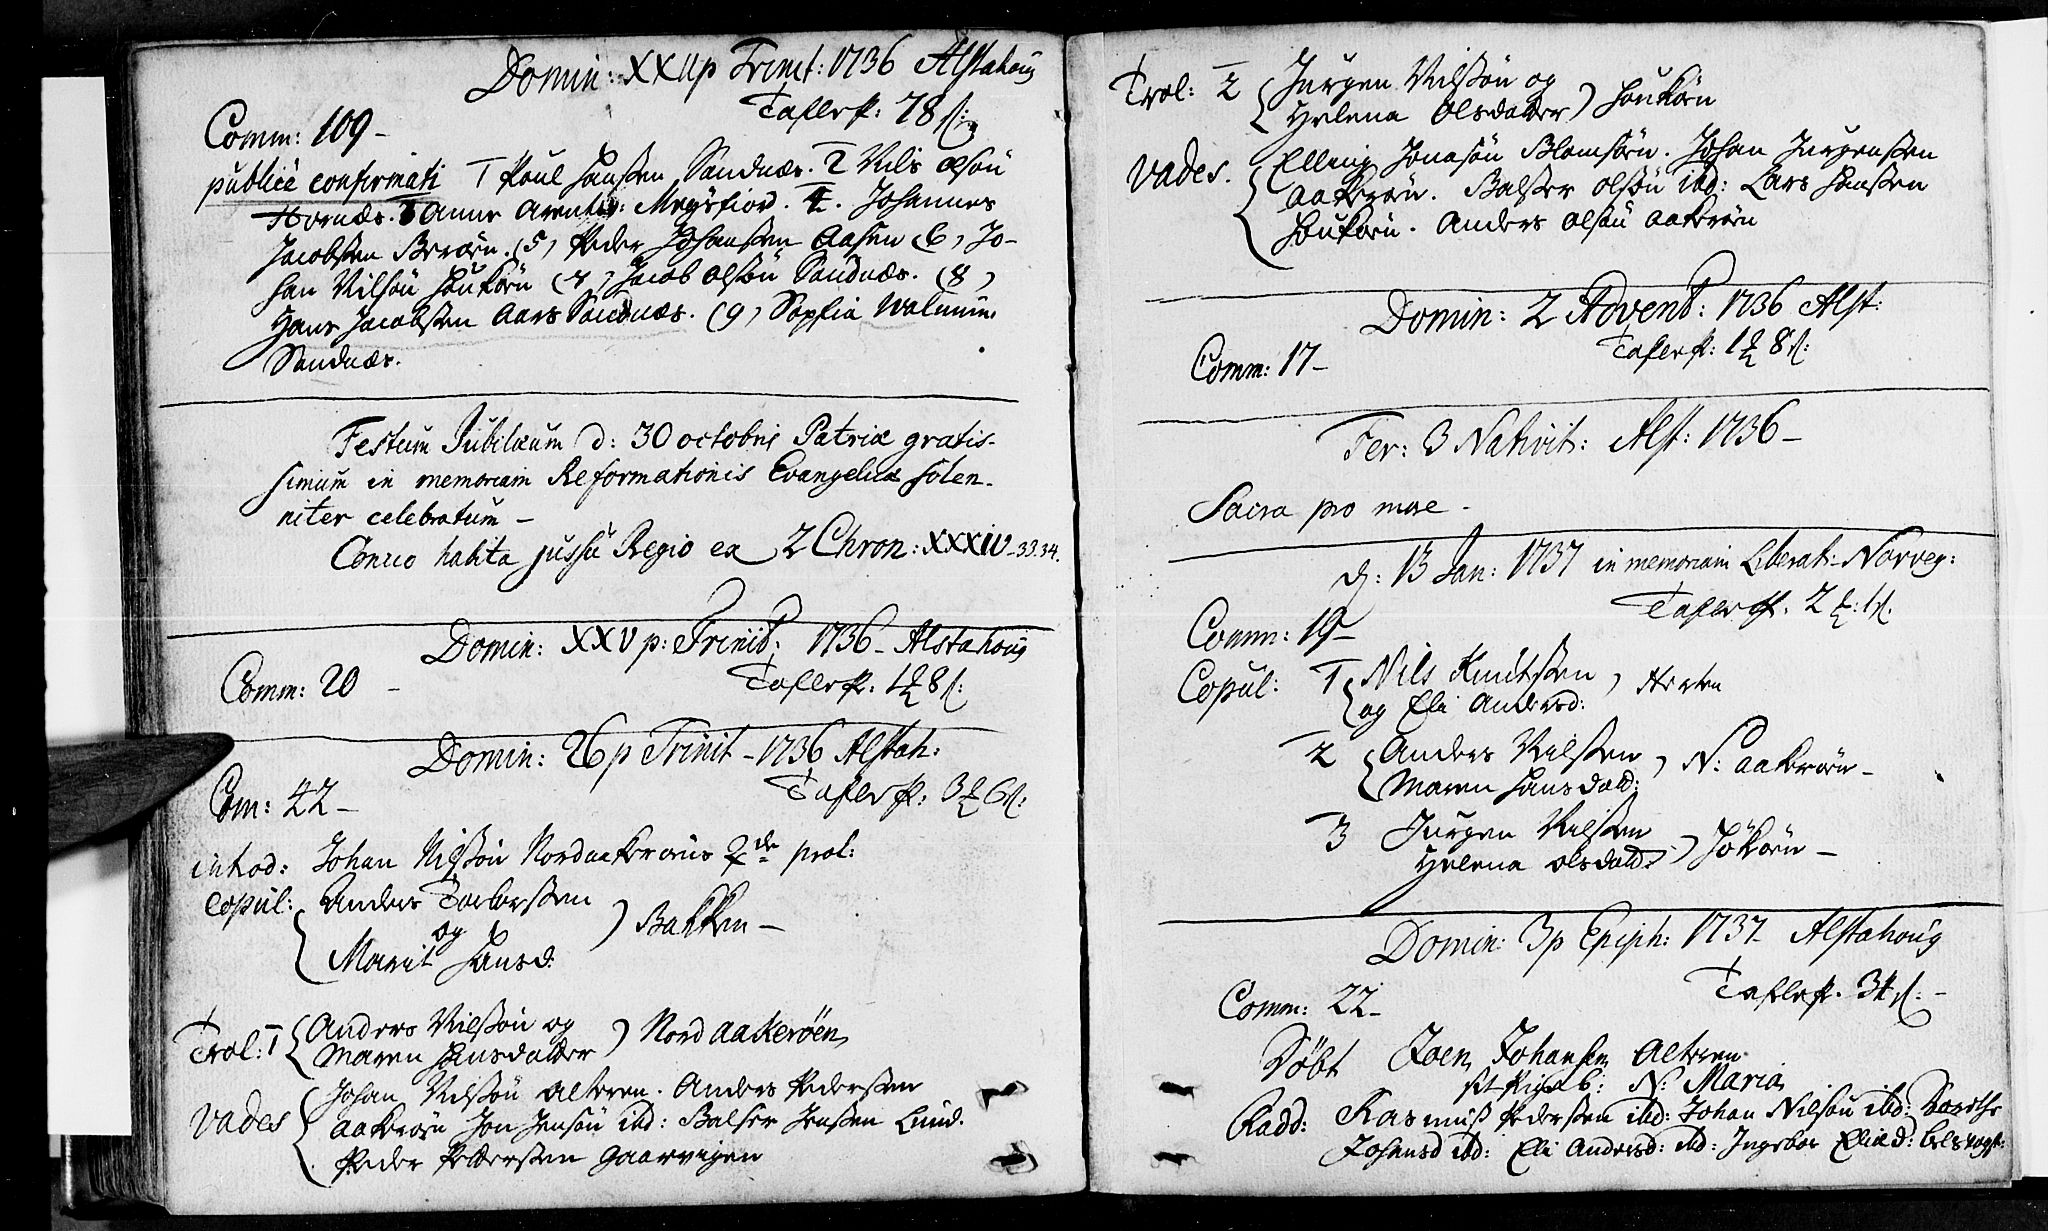 Domin: XXII p Trinit: 1736 Alstahoug
Taflerp: 78 s:
Comm: 109 –
publicè confirmati 1 Poul Hanssen Sandnæs. 2 Nils Olsøn
Hornæs. 3 Anne Arentsd: Meysfiord. 4. Johannes
Jacobssen Berøen. (5) Peder Johanssen Aasen (6) Jo-
han Nilsøn Houkøen (7) Jacob Olsøn Sandnæs. (8)
Hans Jacobssen Aars Sandnæs. (9) Sophia
Sandnæs.
Festum Jubilæum d: 30 octobris Patriæ gratis-
simum in memoriam Reformationis Evangelicæ solen-
niter celebratum –
Concio habita jussu Regio ex 2 Chron: XXXIV – 33.34.
Domin: XXV p: Trinit: 1736 – Alstahoug
Taflerp. 1 8 s:
Comm: 20 –
Domin: 26 p Trinit – 1736 Alstah:
Taflerp: 3 6 s:
Com: 42 –
introd: Johan Nilssøn Nordaakerøens 2de prol:
Copul: Anders
og Bakken –
Marit Hansd:
Trol: 1 Anders Nilssøn og
Maren Hansdatter Nord aakerøen
Vades Johan Nilssøn Alteren. Anders Pederssen
aakerøen Jon Jensøn ibd: Balser Jenssen Lund.
Peder Pederssen Gaarvigen
Trol: 2 Jurgen Nilssøn og
Helena Olsdatter Houkøen
Vades. Elling Jonasøn Blomsøen. Johan Jurgenssen
aakerøen. Balser Olsøn ibd: Lars Hanssen
Houkøen. Anders Olsøn aakerøen
Domin: 2 Advent: 1736 Alst:
Taflerp: 1 8 s:
Comm: 17 –
Fer: 3 Nativit: Alst: 1736 –
Sacra pro more –
d: 13 Jan: 1737 in memoriam Liberat: Norveg:
Taflerp. 2 : 1 s.
Comm: 19 –
Copul: 1 Nils Knutssen
og Eli Andersd: Herten
2 Anders Nilssen
Maren Hansdatd: N: aakerøen –
3 Jurgen Nilssen
Helena Olsdatd: Hökøen –
Domin: 3 p Epiph: 1737 – Alstahoug
Taflerp. 34 s: –
Comm: 22 –
Döbt Joen Johansen Alteren
b: N: Maria
Fadd: Rasmuss Pederssen ibd: Johan Nilsøn ibd: Dorothe
Johansd ibd: Eli Andersd: ibd: Ingebor Eliæd: